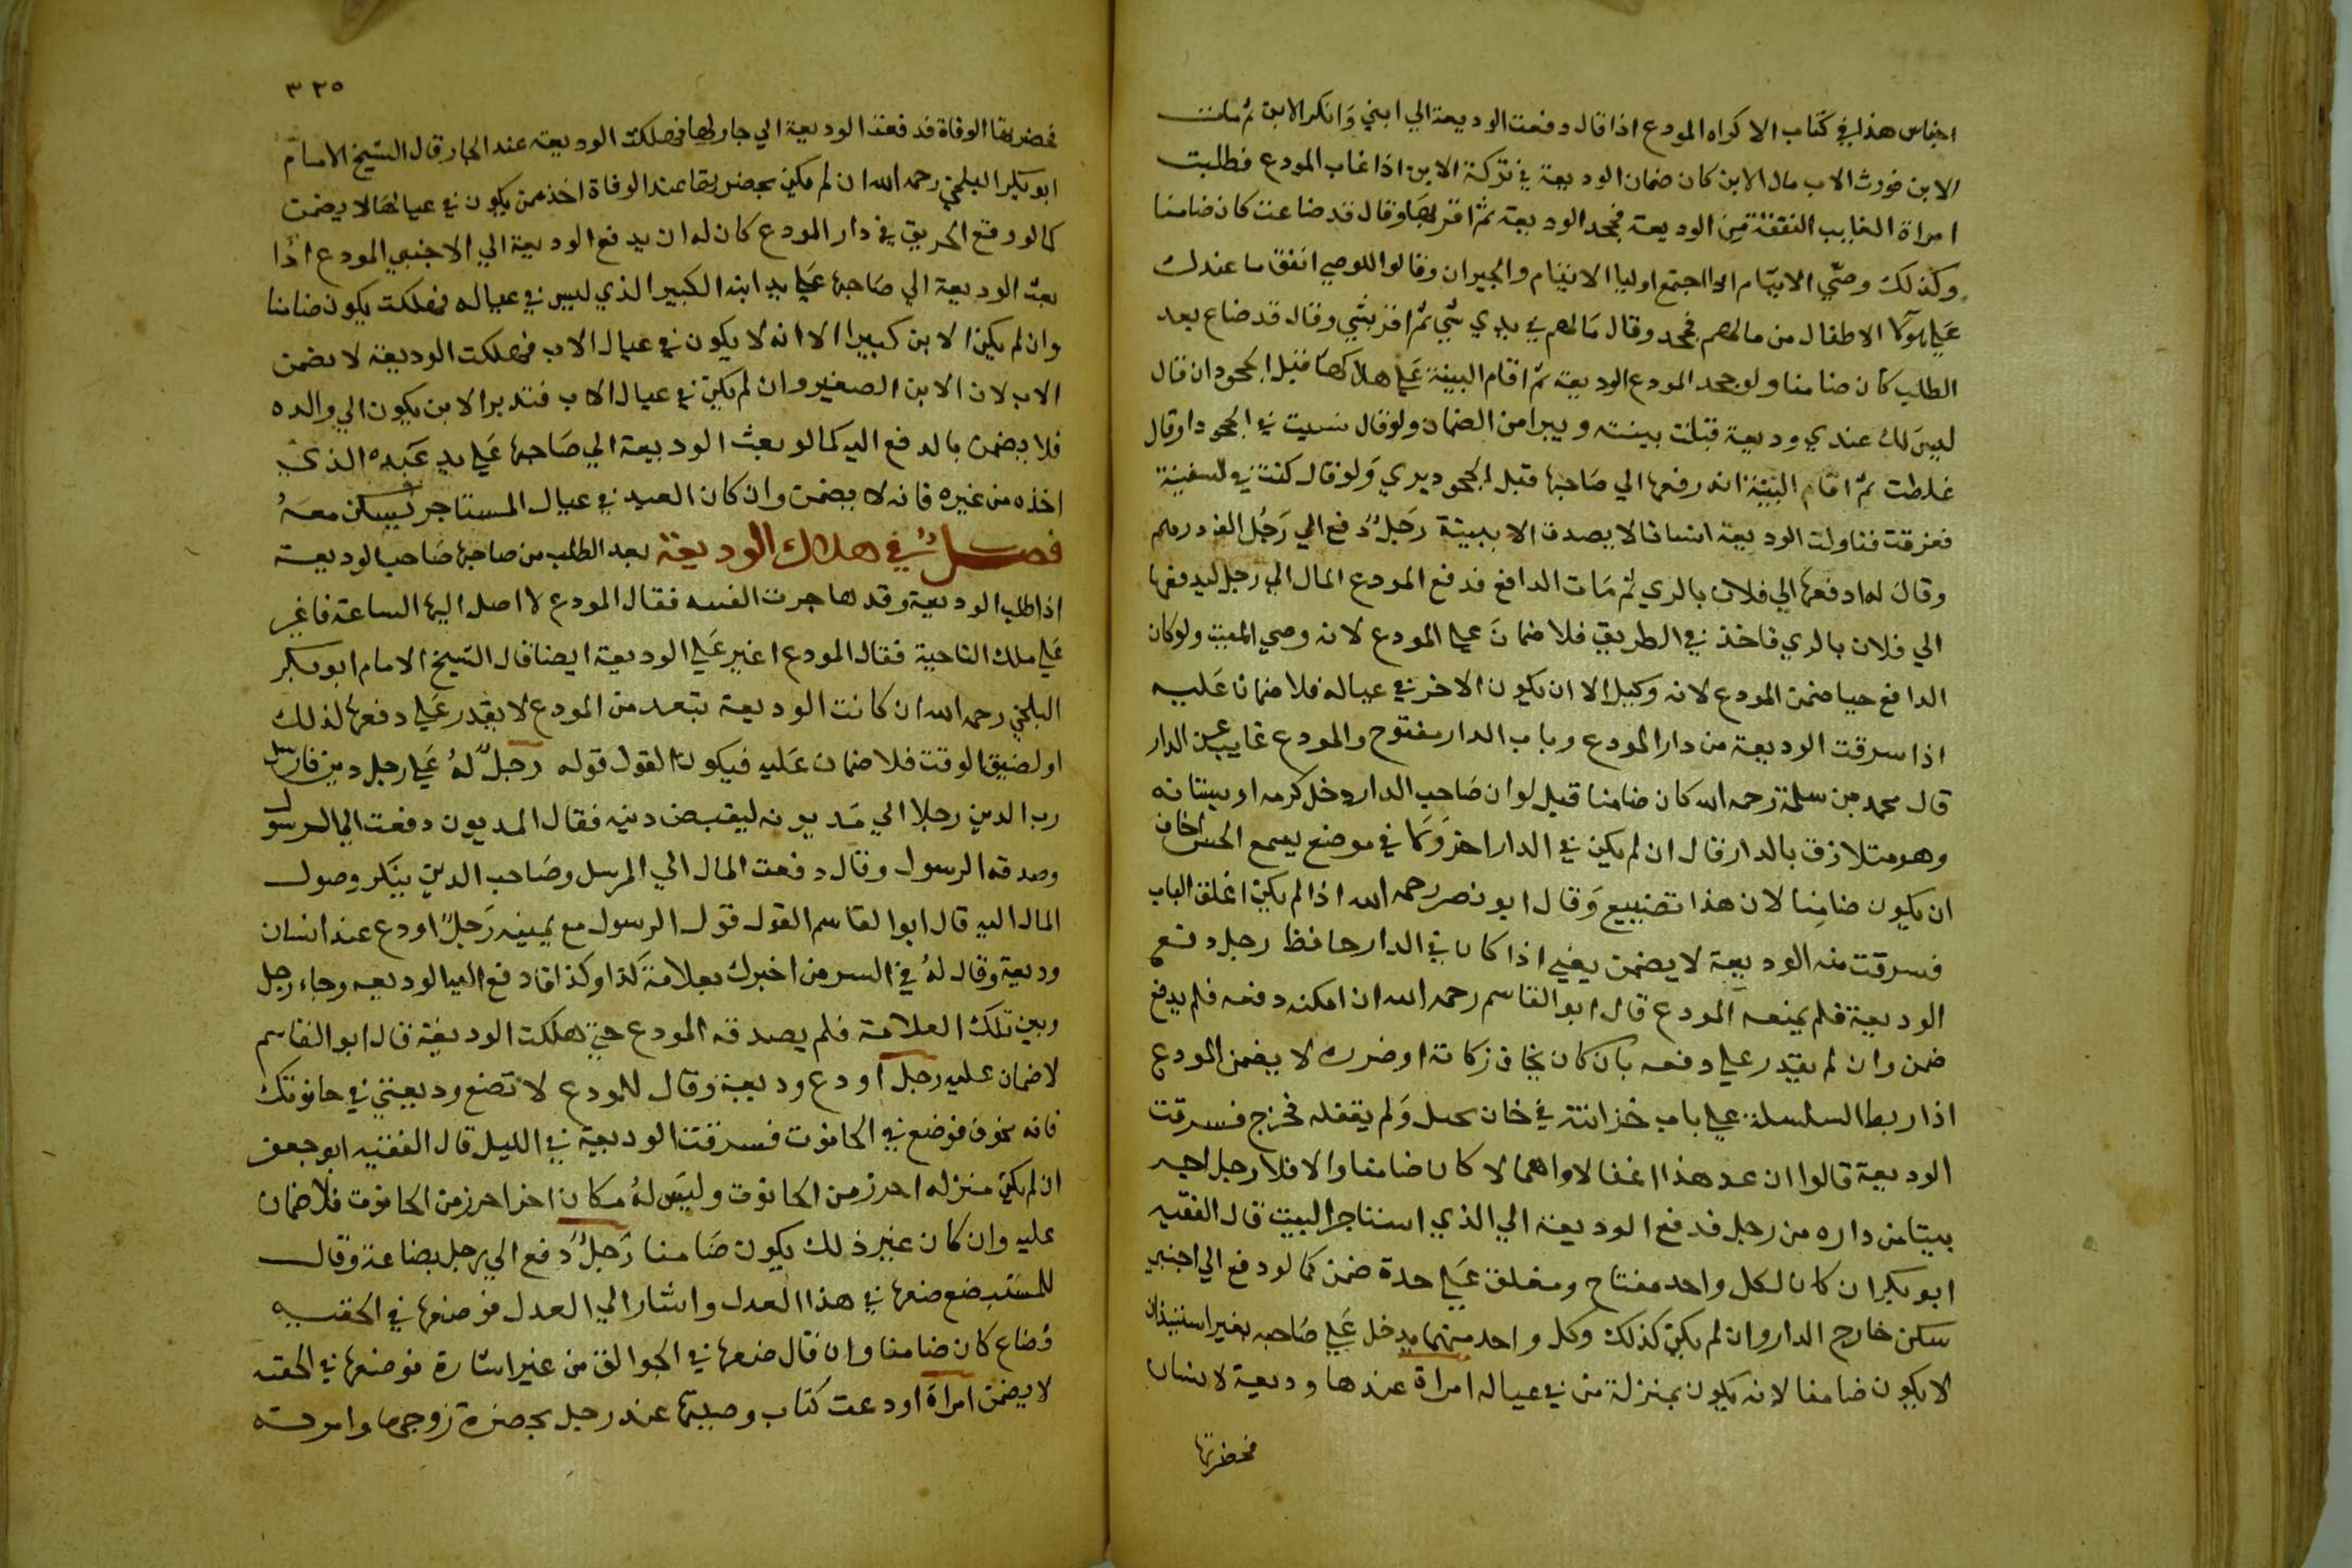 اجناس هذا في كتاب الاكراه المودع اذا قال دفعت الوديعة الي ابني وانكر الابن ثم مات
الابن فورث الاب مال الابن كان ضمان الوديعة في تركة الابن اذا غاب المودع فطلبت
امراة الغايب النفقة من الوديعة فجحد الوديعة ثم اقر بها وقال قد ضاعت كان ضامنا
وكذلك وصي الايتام اذا اجتمع اوليا الايتام والجيران وقالوا للوصي انفق ما عندك
علي هولا الاطفال من مالهم فجحد وقال مالهم في يدي شي ثم اقر بشي وقال قد ضاع بعد
الطلب كان ضامنا ولو جحد المودع الوديعة ثم اقام البينة علي هلاكها قبل الجحود ان قال
ليس لك عندي وديعة قبلت بينته ويبرا من الضمان ولو قال نسيت في الجحود او قال
غلطت ثم اقام البينة انه دفعها الي صاحبها قبل الجحود يبري ولو قال كنت في السفينة
فغرقت فناولت الوديعة انسانا لا يصدق الا ببينة رجل دفع الي رجل الف درهم
وقال له ادفعها الي فلان بالري ثم مات الدافع فدفع المودع المال الي رجل ليدفعها
الي فلان بالري فاخذ في الطريق فلا ضمان علي المودع لانه وصي الميت ولو كان
الدافع حيا ضمن المودع لانه وكيل الا ان يكون الاخر في عياله فلا ضمان عليه
اذا سرقت الوديعة من دار المودع وباب الدار مفتوح والمودع غايب عن الدار
قال محمد بن سلمة رحمه الله كان ضامنا قيل لو ان صاحب الدار دخل كرمه او بستانه
وهو متلازق بالدار قال ان لم يكن في الدار احد وكما في موضع يسمع الحس اخاف
ان يكون ضامنا لان هذا تضييع وقال ابو نصر رحمه الله اذا لم يكن اغلق الباب
فسرقت منه الوديعة لا يضمن يعني اذا كان في الدار حافظ رجل دفع
الوديعة فلم يمنعه المودع قال ابو القاسم رحمه الله ان امكنه دفعه فلم يدفع
ضمن وان لم يقدر علي دفعه بان كان يخاف زكاته او ضربه لا يضمن المودع
اذا ربط السلسلة علي باب خزانته في خان بحبل ولم يقفله فخرج فسرقت
الوديعة قالوا ان عد هذا اغفالا واهمالا كان ضامنا والا فلا رجل اجر
بيتا من داره من رجل فدفع الوديعة الي الذي استاجر البيت قال الفقيه
ابو بكر ان كان لكل واحد مفتاح ومغلق علي حدة ضمن كما لو دفع الي اجنبي
سكن خارج الدار وان لم يكن كذلك وكل واحد منهما يدخل علي صاحبه بغير استيذان
لا يكون ضامنا لانه يكون بمنزلة من في عياله امراة عندها وديعة لانسان
فحضرتها
٣٢٥
فحضرتها الوفاة فدفعت الوديعة الي جار لها فهلكت الوديعة عند الجار قال الشيخ الامام
ابو بكر البلخي رحمه الله ان لم يكن بحضرتها عند الوفاة احد ممن يكون في عيالها لا يضمن
كما لو وقع الحريق في دار المودع كان له ان يدفع الوديعة الي الاجنبي المودع اذا
بعث الوديعة الي صاحبها علي يد ابنه الكبير الذي ليس في عياله فهلكت يكون ضامنا
وان لم يكن الابن كبيرا الا انه لا يكون في عيال الاب فهلكت الوديعة لا يضمن
الاب لان الابن الصغير وان لم يكن في عيال الاب فتدبر الابن يكون الي والده
فلا يضمن بالدفع اليه كما لو بعث الوديعة الي صاحبها علي يد عبده الذي
اخذه من غيره فانه لا يضمن وان كان العبد في عيال المستاجر ويسكن معه
فصل في هلاك الوديعة بعد الطلب من صاحبها صاحب الوديعة
اذا طلب الوديعة وقد هاجرت الفتنه فقال المودع لا اصل اليها الساعة فاغير
علي تلك الناحية فقال المودع اغير علي الوديعة ايضا قال الشيخ الامام ابو بكر
البلخي رحمه الله ان كانت الوديعة بتبعد من المودع لا يقدر علي دفعها لذلك
او لضيق الوقت فلا ضمان عليه فيكون القول قوله رجل له علي رجل دين فارسل
رب الدين رجلا الي مديونه ليقبض دينه فقال المديون دفعت الي الرسول
وصدقه الرسول وقال دفعت المال الي المرسل وصاحب الدين ينكر وصول
المال اليه قال ابو القاسم القول قول الرسول مع يمينه رجل اودع عند انسان
وديعة وقال له في السر من اخبرك بعلامة كذا وكذا فادفع اليه الوديعه وجاء رجل
وبين تلك العلامة فلم يصدقه المودع حتي هلكت الوديعة قال ابو القاسم
لا ضمان عليه رجل اودع وديعة وقال للمودع لا تضع وديعتي في حانوتك
فانه مخوف فوضع في الحانوت فسرقت الوديعة في الليل قال الفقيه ابو جعفر
ان لم يكن منزله احرز من الحانوت وليس له مكان اخر احرز من الحانوت فلا ضمان
عليه وان كان غير ذلك يكون ضامنا رجل دفع الي رجل بضاعة وقال
للمستبضع ضعها في هذا العدل واشار الي العدل فوضعها في الحقيبه
فضاع كان ضامنا وان قال ضعها في الجوالق من غير اشارة فوضعها في الحقبه
لا يضمن امراة اودعت كتاب وصيتها عند رجل بحضرة زوجها وامرته